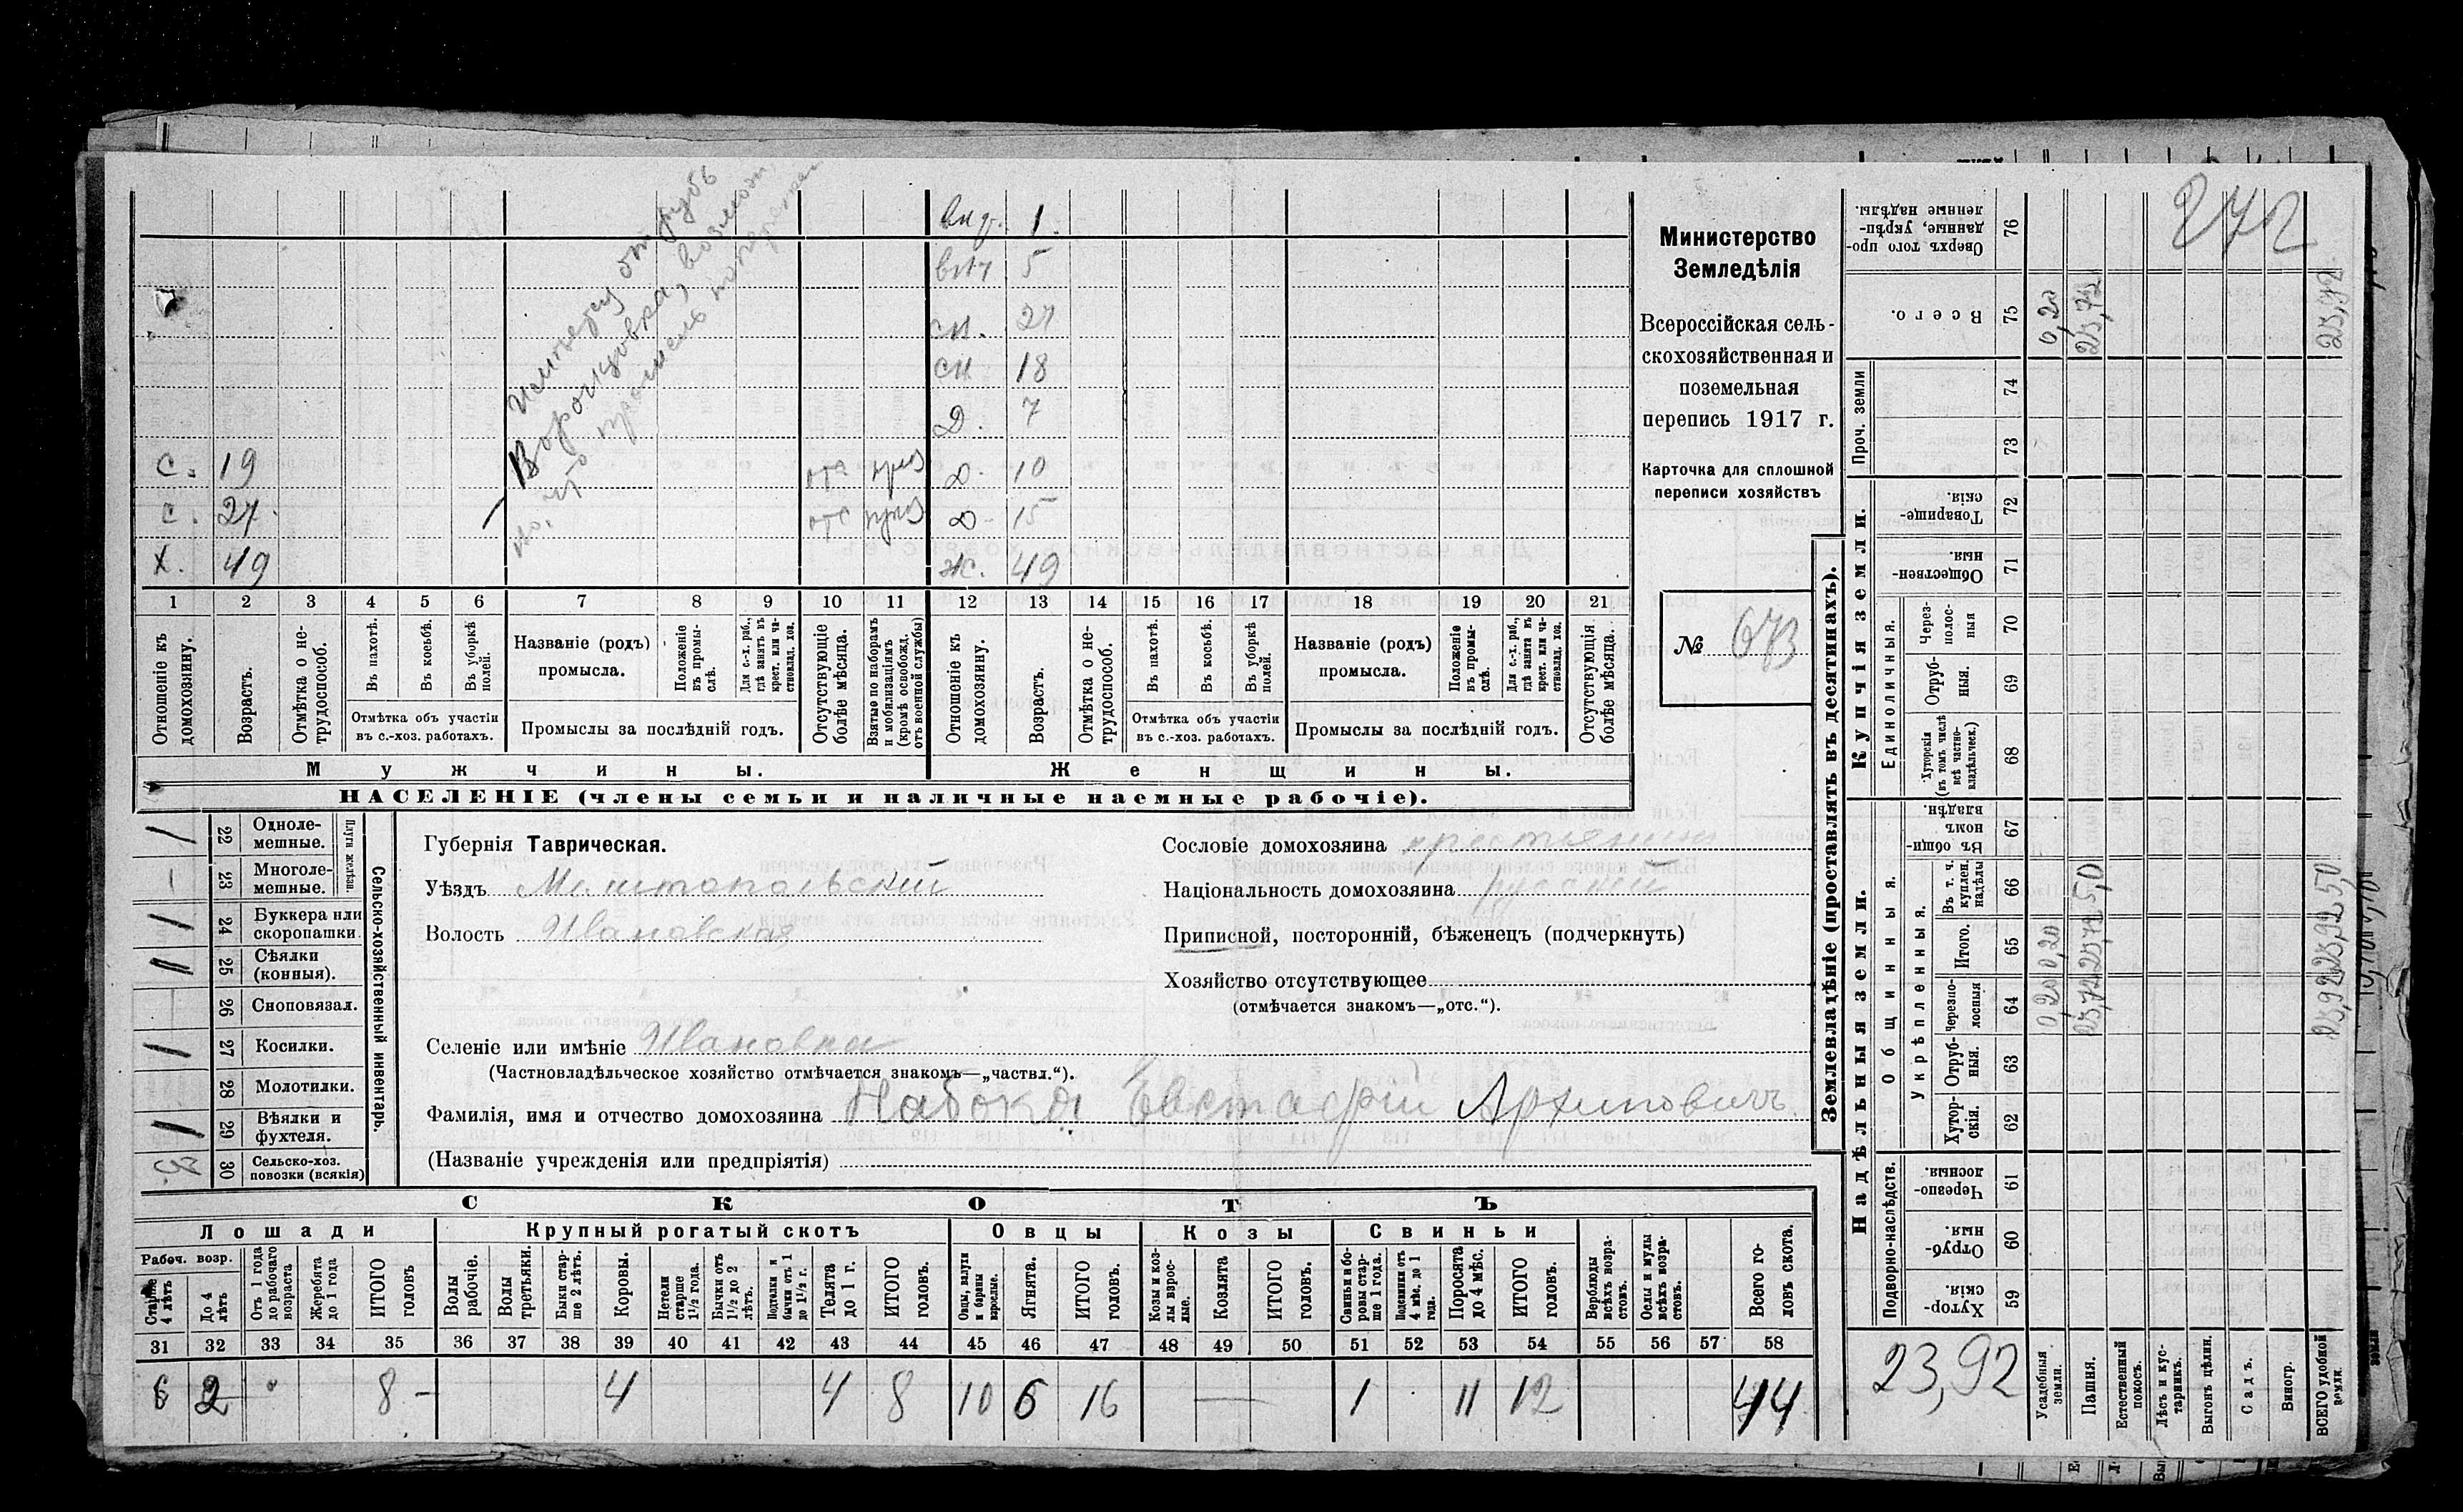 вну. 1.
внч 5
сн. 27
сн 18
Д. 7
с. 19 отс приз Д. 10
с. 27 отс приз Д. 15
Х. 49 ж. 49
1 2 3 4 5 6 7 8 9 10 11 12 13 14 15 16 17 18 19 20 21
Отношеніе къ домохозяину.
Возрастъ.
Отмѣтка о нетрудоспособ.
Въ пахотѣ.
Въ косьбѣ.
Въ уборкѣ полей.
Отмѣтка объ участіи
въ с.-хоз. работахъ.
Названіе (родъ)
промысла.
Положеніе въ промыслѣ.
Для с.-х. раб., гдѣ занятъ въ крест. или частновлад. хоз.
Промыслы за послѣдній годъ.
Отсутствующіе болѣе мѣсяца.
Взятые по наборамъ и мобилизаціямъ (кромѣ освобожд. отъ военной службы)
Отношеніе къ домохозяину.
Возрастъ.
Отмѣтка о нетрудоспособ.
Въ пахотѣ.
Въ косьбѣ.
Въ уборкѣ полей.
Отмѣтка объ участіи
въ с.-хоз. работахъ.
Названіе (родъ)
промысла.
Положеніе въ промыслѣ.
Для с.-х. раб., гдѣ занятъ въ крест. или частновлад. хоз.
Промыслы за послѣдній годъ.
Отсутствующія болѣе мѣсяца.
Мужчины. Женщины.
НАСЕЛЕНІЕ (члены семьи и наличные наемные рабочіе).
Министерство
Земледѣлія
Всероссійская сель-
скохозяйственная и
поземельная
перепись 1917 г.
Карточка для сплошной
переписи хозяйствъ
№ 673
Сельско-хозяйственный инвентарь.
Плуги желѣзн.
1 22 Однолемешные.
– 23 Многолемешные.
1 24 Буккера или скоропашки.
11 25 Сѣялки (конныя).
26 Сноповязал.
1 27 Косилки.
28 Молотилки.
1 29 Вѣялки и фухтеля.
3 30 Сельско-хоз. повозки (всякія)
Губернія Таврическая.
Уѣздъ Мелитопольскій
Волость Ивановская
Сословіе домохозяина крестьянинъ
Національность домохозяина русскій
Приписной, посторонній, бѣженецъ (подчеркнуть)
Хозяйство отсутствующее
(отмѣчается знакомъ—„отс.“).
Селеніе или имѣніе Ивановка
(Частновладѣльческое хозяйство отмѣчается знакомъ—„частвл.“).
Фамилія, имя и отчество домохозяина Набока Евстафій Архиповичъ
(Названіе учрежденія или предпріятія)
СКОТЪ
Лошади Крупный рогатый скотъ Овцы Козы Свиньи
Рабоч. возр.
Старше 4 лѣтъ
До 4 лѣтъ
Отъ 1 года до рабочаго возраста
Жеребята до 1 года
ИТОГО головъ
Волы рабочіе.
Волы третьяки.
Быки старше 2 лѣтъ.
Коровы.
Нетели старше 1½ года.
Бычки отъ 1½ до 2 лѣтъ.
Подтелки и бычки отъ 1 до 1½ г.
Телята до 1 г.
ИТОГО головъ.
Овцы, валухи и бараны взрослые.
Ягнята.
ИТОГО головъ.
Козы и козлы взрослые.
Козлята
ИТОГО головъ.
Свиньи и боровы старше 1 года.
Подсвинки отъ 4 мѣс. до 1 года.
Поросята до 4 мѣс.
ИТОГО головъ.
Верблюды всѣхъ возрастовъ.
Ослы и мулы всѣхъ возрастовъ.
Всего головъ скота.
31 32 33 34 35 36 37 38 39 40 41 42 43 44 45 46 47 48 49 50 51 52 53 54 55 56 57 58
6 2 8 – 4 4 8 10 6 16 — 1 11 12 44
Землевладѣніе (проставлять въ десятинахъ).
Надѣльныя земли. Купчія земли.
Проч. земли
Подворно-наслѣдств.
Общинныя.
Укрѣпленныя.
Единоличныя.
Сверхъ того проданные, укрѣпленные надѣлы. 76
Всего. 75
74
73
Товарищескія. 72
Общественныя. 71
Черезполосныя 70
Отрубныя. 69
Хуторскія (въ томъ числѣ всѣ частновладѣльческ.) 68
Въ общинномъ владѣн. 67
Въ т. ч. куплен. надѣлы 66
Итого. 65
Черезполосныя 64
Отрубныя. 63
Хуторскія. 62
Черезполосныя. 61
Отрубныя. 60
Хуторскія 59
272
23,92
Усадебныя земли. 0,20 0,20 0,20
Пашня. 23,72 23,72 5,0 23,72
Естественный покосъ.
Лѣсъ и кустарникъ.
Выгонъ цѣлин.
Садъ.
Виногр.
ВСЕГО удобной земли. 23,92 23,92 5,0 23,92